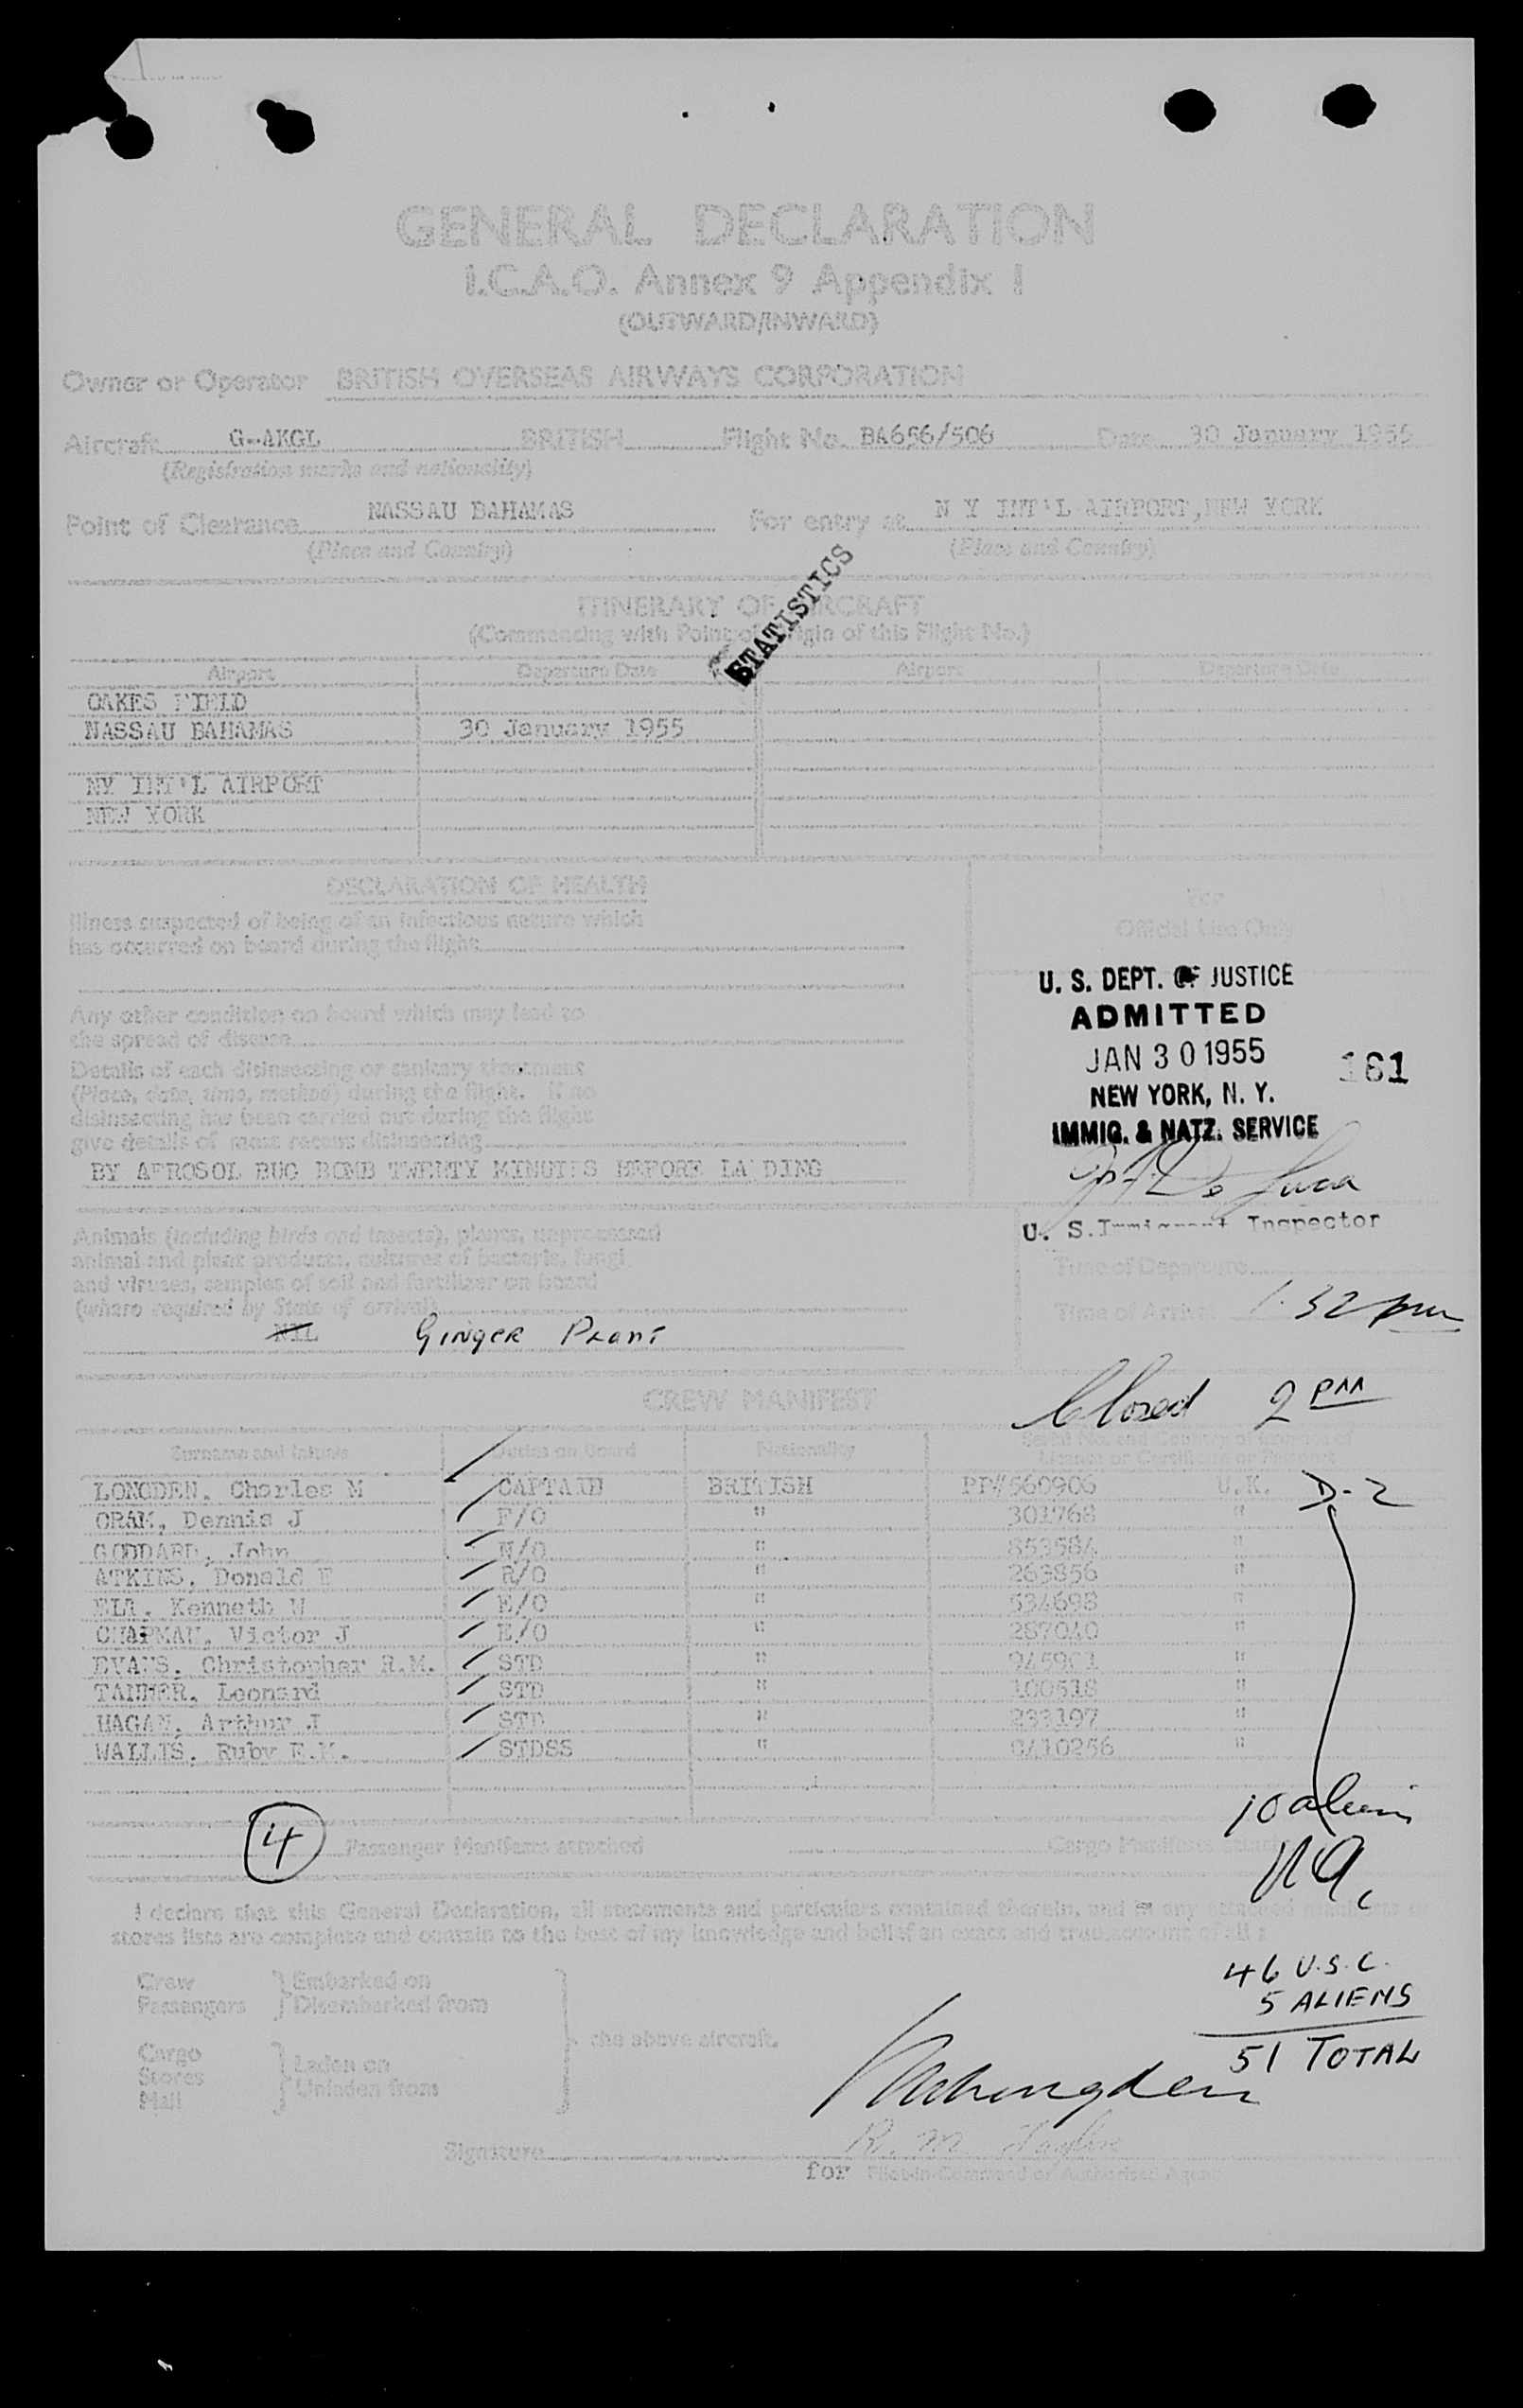 GENERAL DECLARATION
I.C.A.O. Annex 9 Appendix I
(OUTWARD/INWARD)
Owner or Operator BRITISH OVERSEAS AIRWAYS CORPORATION
Aircraft G-AKGL BRITISH Flight No. BA656/506 Date 30 January 1955
(Registration marks and nationality)
Point of Clearance NASSAU BAHAMAS For entry at N Y INT'L AIRPORT, NEW YORK
(Place and Country) (Place and Country)
STATISTICS
ITINERARY OF AIRCRAFT
(Commencing with Point of Origin of this Flight No.)
Airport Departure Date Airport Departure Date
OAKES FIELD
NASSAU BAHAMAS 30 January 1955
NY INT'L AIRPORT
NEW YORK
DECLARATION OF HEALTH
Illness suspected of being of an infectious nature which
has occurred on board during the flight
Any other condition on board which may lead to
the spread of disease
Details of each disinsecting or sanitary treatment
(Place, date, time, method) during the flight. If no
disinsecting has been carried out during the flight
give details of most recent disinsecting
BY AEROSOL BUG BOMB TWENTY MINUTES BEFORE LANDING
For
Official Use Only
U. S. DEPT. OF JUSTICE
ADMITTED
JAN 30 1955 161
NEW YORK, N. Y.
IMMIG. & NATZ. SERVICE
U. S. Immigrant Inspector
Animals (including birds and insects), plants, unprocessed
animal and plant products, cultures of bacteria, fungi
and viruses, samples of soil and fertilizer on board
(where required by State of arrival)
NIL GINGER PLANT
Time of Departure
Time of Arrival 1:32 pm
Closed 2 PM
CREW MANIFEST
Surname and Initials Duties on Board Nationality Serial No. and Country of Issuance of
License or Certificate or Passport
LONGDEN, Charles M CAPTAIN BRITISH PP#560906 U.K. D-2
ORAM, Dennis J F/O " 301768 "
GODDARD, John N/O " 853584 "
ATKINS, Donald E R/O " 263856 "
Kenneth W E/O " 534698 "
CHAPMAN, Victor J E/O " 287040 "
EVANS, Christopher R.M. STD " "
TANNER, Leonard STD " 100518 "
HAGAN, Arthur J STD " 233197 "
WALLIS, Ruby E.M. STDSS " "
10 aliens
4 Passenger Manifests attached Cargo Manifests
I declare that this General Declaration, all statements and particulars contained therein, and in any attached manifests or
stores lists are complete and contain to the best of my knowledge and belief an exact and true account of all
46 U.S.C.
5 ALIENS
51 TOTAL
Crew
Passengers
Embarked on
Disembarked from
Cargo
Stores
Mail
Laden on
Unladen from
the above aircraft.
Signature R. M. Taylor
for Pilot-in-Command or Authorised Agent